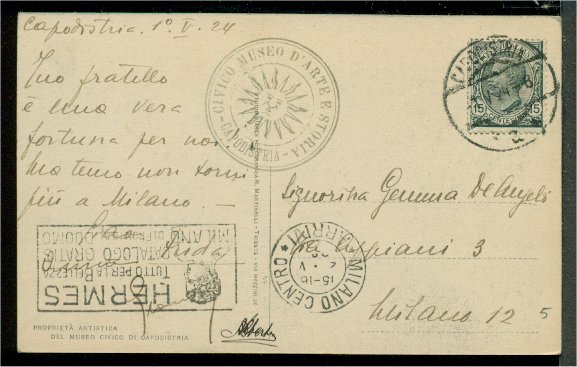 Capodistria. 1° V. 24
Tuo fratello
è una vera
fortuna per noi
ma temo non torni
più a Milano. —
CIVICO MUSEO D'ARTE E STORIA
- CAPODISTRIA -
CAPODISTRIA
15 15
Signorina Gemma De Angeli
via 3
Milano 12
5
MILANO CENTRO
ARRIVI
15-16
HERMES
TUTTO PER LA BELLEZZA
CATALOGO GRATIS
MILANO DUOMO
PROPRIETÀ ARTISTICA
DEL MUSEO CIVICO DI CAPODISTRIA